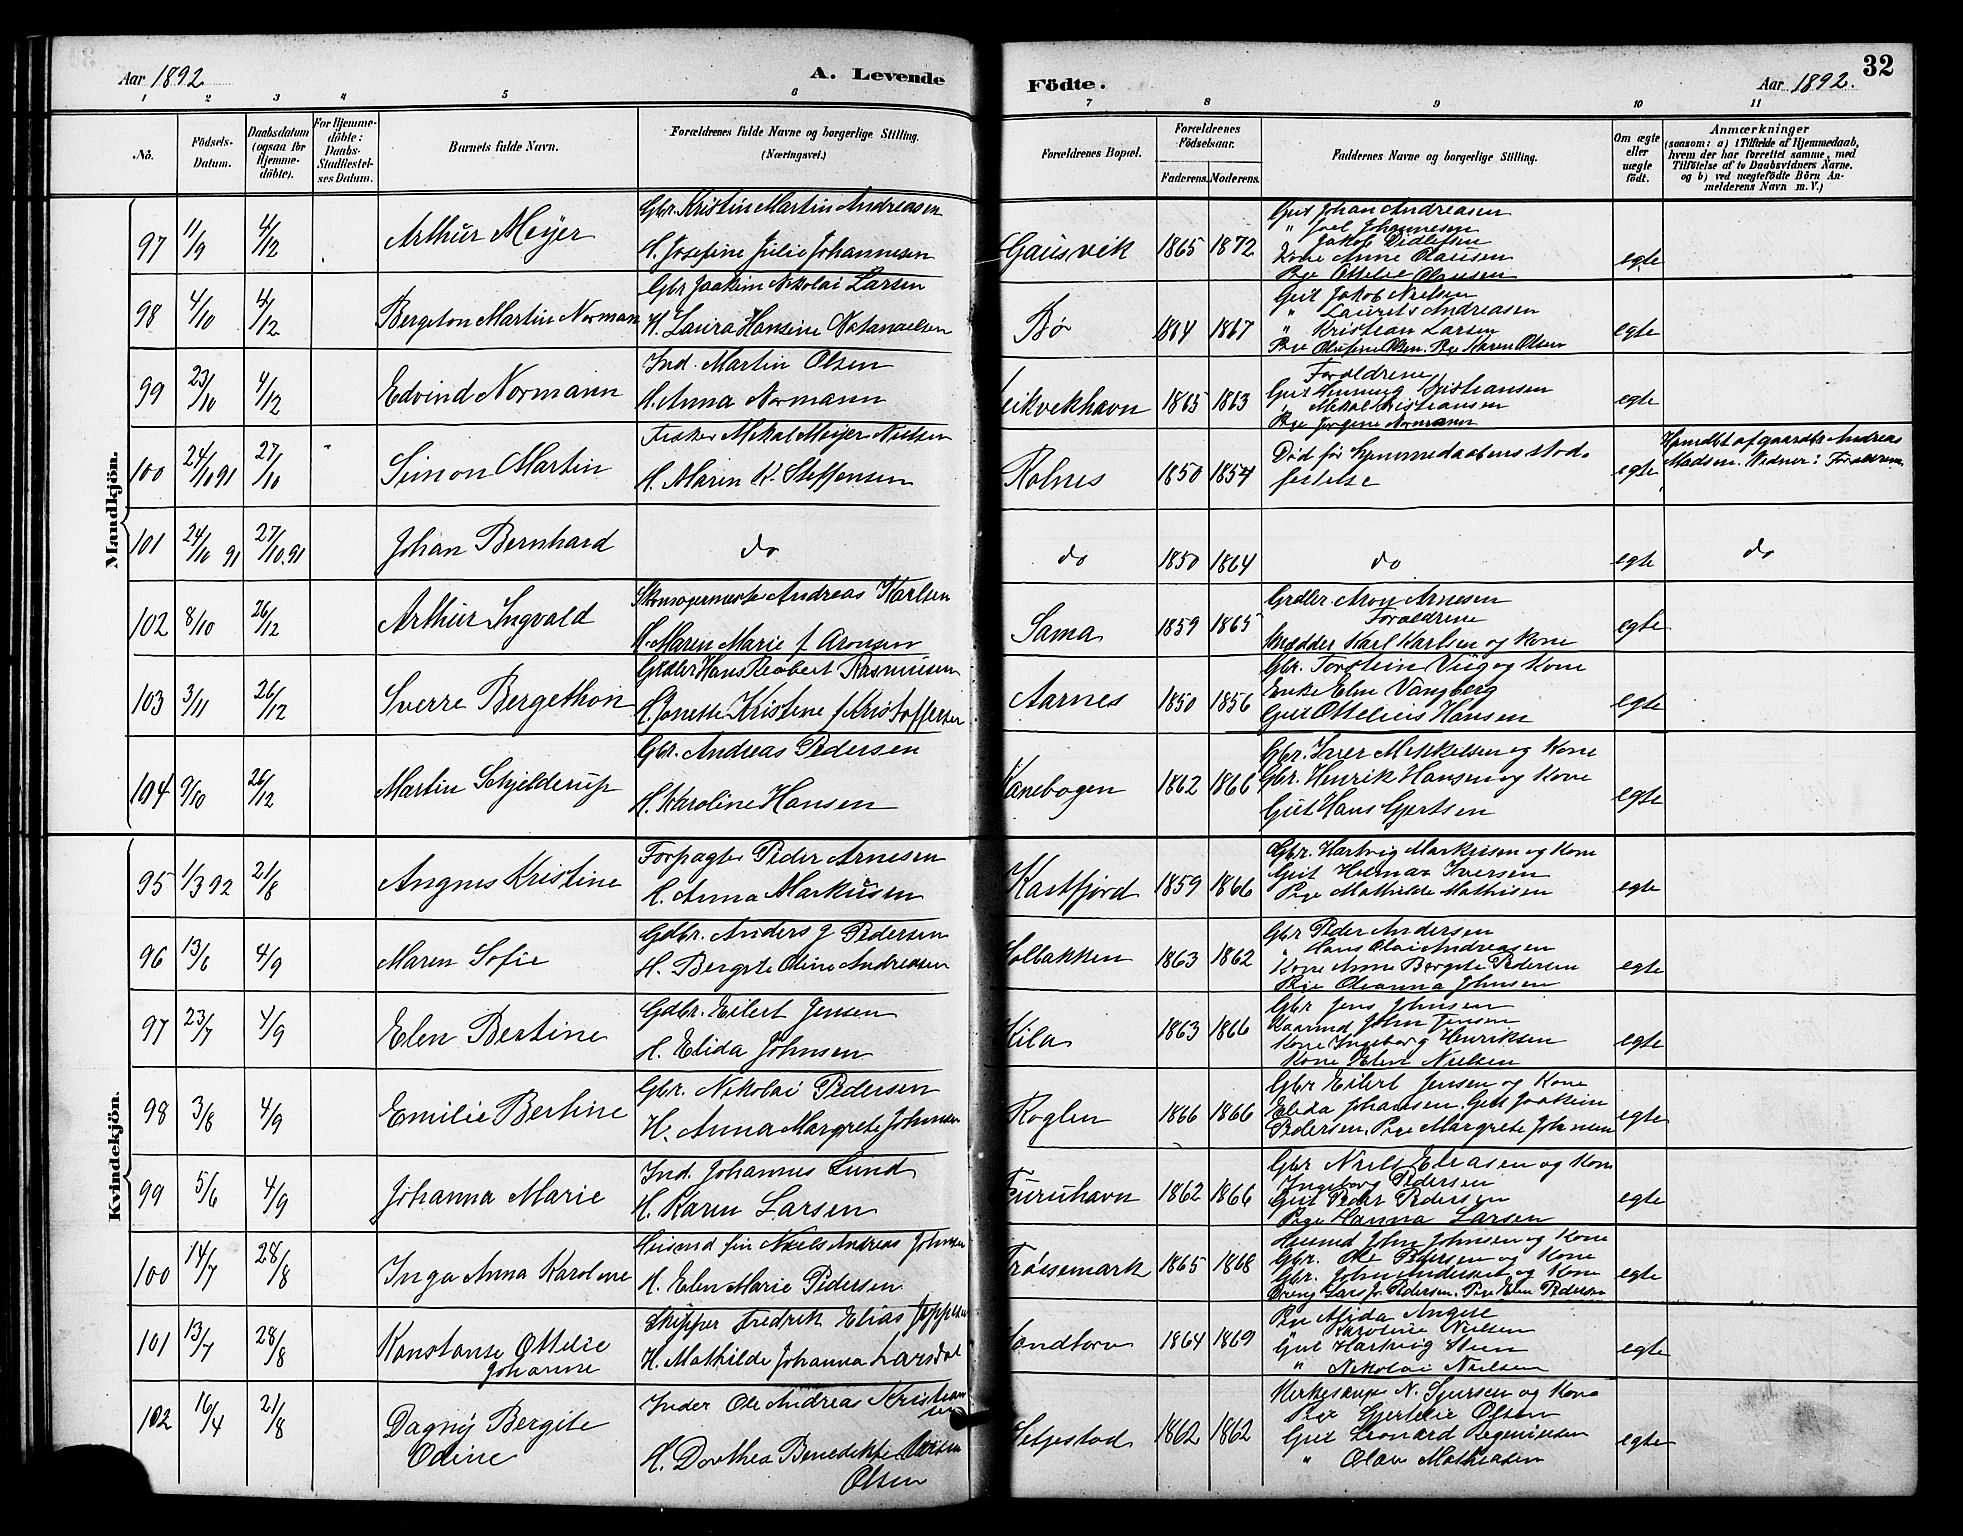 32
Aar 1892
A. Levende
Födte.
Aar 1892.
1 2 3 4 5 6 7 8 9 10 11
No.
Födsels-
Datum.
Daabsdatum
(ogsaa for
Hjemme-
döbte).
For Hjemme-
döbte:
Daabs-
Stadfæstel-
ses Datum.
Barnets fulde Navn.
Forældrenes fulde Navne og borgerlige Stilling.
(Næringsvei.)
Forældrenes Bopæl.
Forældrenes
Födselsaar.
Faderens. Moderens.
Faddernes Navne og borgerlige Stilling.
Om ægte
eller
uægte
födt.
Anmærkninger
(saasom: a) i Tilfælde af Hjemmedaab,
hvem der har forrettet samme, med
Tilföielse af to Daabsvidners Navne.
og b) ved uægtefödte Börn An-
melderens Navn m. V.)
Mandkjön.
97 11/9 4/12 Arthur Meyer
Gbr. Kristin Martin Andreasen
H. Josefine Julie Johannesen
Gausvik 1865 1872
Gut Johan Andreasen
" Joel Johannesen
Jakob Didlefsen
Kone Anne Olausen
Pge Ottelie Olausen
egte
98 4/10 4/12 Bergeton Martin Norman
Gbr Joakim Nikolai Larsen
H. Laura Hansine Natanaelsen
Bø 1864 1867
Gut Jakob Nielsen
" Laurits Andreasen
" Kristian Larsen
Pge Olufine Olsen. Pge Karen Olsen
egte
99 23/10 4/12 Edvind Normann
Ind. Martin Olsen
H. Anna Normann
eikvekhavn 1865 1863
Foraldrene
Gut Henning Kristiansen
" Mekal Kristiansen
Pge Jørgine Normann
egte
100 24/10 91 27/10 Simon Martin
Fisker Mekal Meyer Nielsen
H. Maren K. Steffensen
Rolnes 1850 1854
Død før hjemmedaabens stad-
festelse
egte
Hjemdbt af gaardbr Andreas
Madsen. Vidner: Foraldrene
101 24/10 91 27/10.91 Johan Bernhard
do
do 1850 1864 do egte do
102 8/10 26/12 Arthur Ingvald
Andreas Karlsen
H. Maren Marie f. Aronsen
Sama 1859 1865
Grdler. Aron Arnesen
Foraldrene
Karl Karlsen og Kone
egte
103 3/11 26/12 Sverre Bergethon
Grdler Hans Reobert Rasmusen
H. Jonette Kristine f. Kristoffersen
Aarnes 1850 1856
Gbr. Torstein Viig og Kone
Enke Elen Vangberg
Gut Ottelius Hansen
egte
104 9/10 26/12 Martin Schjelderup
Gbr. Andreas Pedersen
H. Karoline Hansen
Kanebogen 1862 1866
Gbr. Iver Mikkelsen og Kone
Gbr. Henrik Hansen og Kone
Gut Hans Gjertsen
egte
Kvindekjön.
95 1/3 92 21/8 Angnes Kristine
Forpagter Peder Arnesen
H. Anna Markusen
Kastfjord 1859 1866
Gbr. Hartvig Markusen og Kone
Gut Helmar Iversen
Pige Mathilde Mathisen
egte
96 13/6 4/9 Maren Sofie
Gdbr. Anders g Pedersen
H. Bergite Oline Andreasen
Holbakken 1863 1862
Gbr Peder Andersen
Hans Olai Andreasen
Kone Anne Bergite Pedersen
Pige Oleanna Johnsen
egte
97 23/7 4/9 Elen Bertine
Gdbr. Eilert Jensen
H. Elida Johnsen
Kila 1863 1866
Gbr. Jens Johnsen
Kaarmd John Jensen
Kone Ingeborg Henriksen
Kone Elen Nielsen
egte
98 3/8 4/9 Emilie Bertine
Gbr. Nikolai Pedersen
H. Anna Margrete Johnsen
Roglen 1866 1866
Gbr Eilert Jensen og Kone
Elida Johansen. Gut Joakim
Pedersen. Pige Margrete Johnsen
egte
99 5/6 4/9 Johanna Marie
Ind. Johannes Lund
H. Karen Larsen
Furuhavn 1862 1866
Gbr Niels Eliasen og Kone
Ingeborg Pedersen
Gut Peder Pedersen
Pige Hanna Larsen
egte
100 14/7 28/8 Inga Anna Karoline
Niels Andreas Johnsen
H. Elen Marie Pedersen
Trøssemark 1865 1868
Husmd John Johnsen og Kone
Gbr. Ole Pedersen og Kone
Gbr. John Andersen og Kone
Dreng Lars Jr. Pedersen. Pige Elen Pedersen
egte
101 13/7 28/8 Konstanse Ottelie
Johanne
Skipper Fredrik Elias Jeppesen
H. Mathilde Johanna Larsdat
Sandtorv 1864 1869
Pge Alida Angele
Karoline Nielsen
Gut Hartvig Steen
" Nikolai Nielsen
egte
102 16/4 21/8 Dagny Bergite
Odine
Inder Ole Andreas Kristian
sen
H. Dorthea Benedikte
Olsen
Setjestad 1862 1862
Kirkesanger N. Sjursen og Kone
Pige Gjertelie Olsen
Gut Leonard Regenussen
" Olav Mathiasen
egte